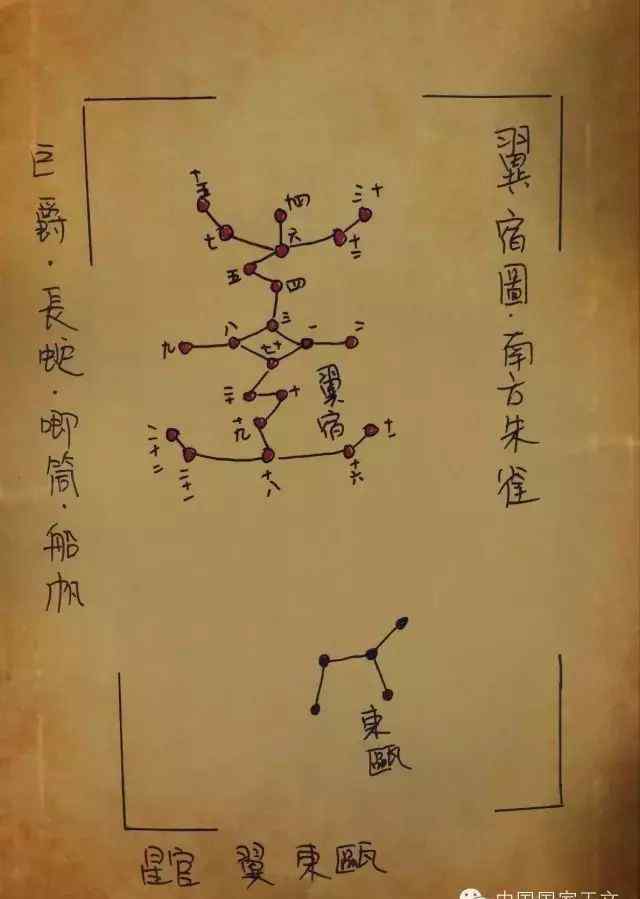 翼宿圖·南方朱雀
巨爵·長蛇·唧筒·船帆
十五
十四
十三
七
六
十二
五
四
三
八
一
九
二
十七
翼宿
二十
十
十九
十一
二十二
二十一
十八
十六
東甌
星官 翼 東甌
中国国家天文